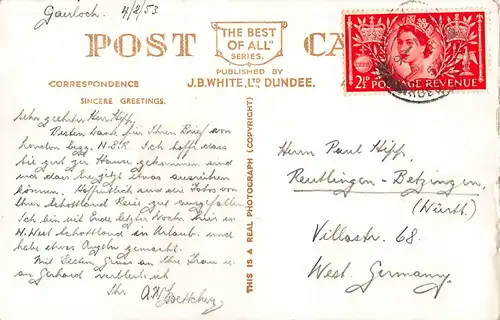 Gairloch. 4/8/53
POST CA
"THE BEST
OF ALL"
SERIES.
PUBLISHED BY
J.B. WHITE, LTD DUNDEE.
CORRESPONDENCE
SINCERE GREETINGS.
2½D POSTAGE REVENUE
Sehr geehrter Herr Hipp,
Besten Dank für Ihren Brief von
London bezg. N.S.R. Ich hoffe dass
Sie gut zu Hause gekommen sind
und dass Sie jetzt etwas ausruhen
können. Hoffentlich sind die Fotos von
Ihrer Schottland Reise gut ausgefallen
Ich bin seit Ende letzter Woche hier in
N.West Schottland in Urlaub. und
habe etwas Angeln gemacht.
Mit besten Gruss an Ihre Frau u.
an Gerhard verbleib ich
Ihr A.W.
THIS IS A REAL PHOTOGRAPH (COPYRIGHT)
Herrn Paul Hipp,
Reutlingen - Betzingen,
(Württ.)
Villastr. 68.
West. Germany.